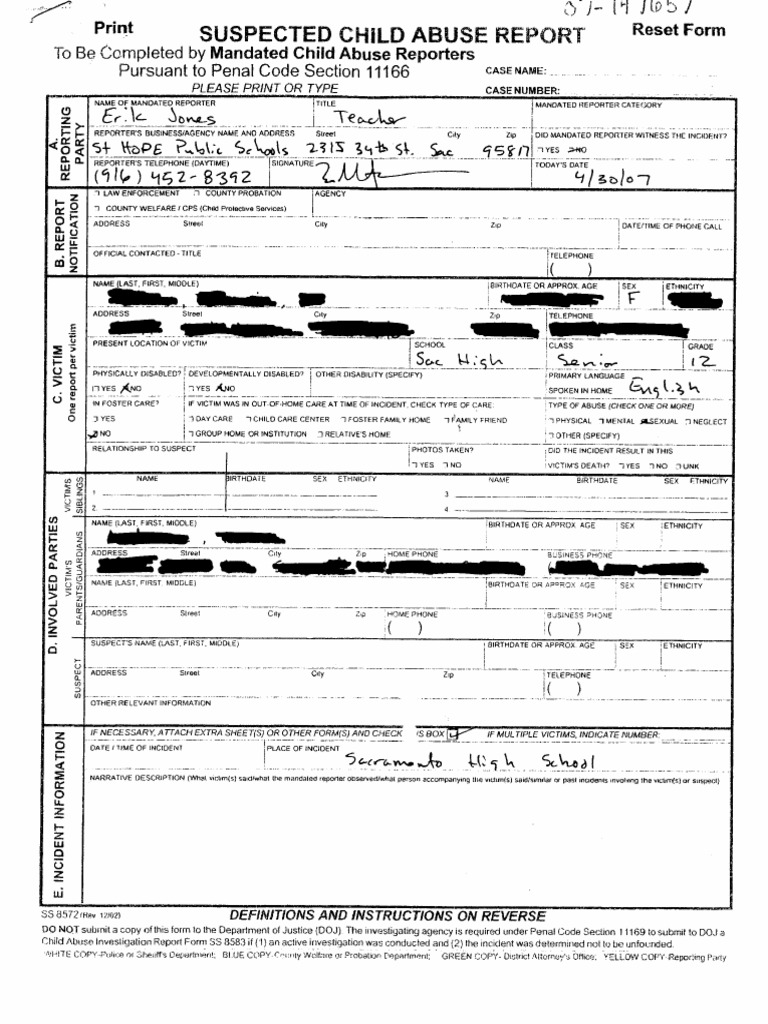 07-147657
Print SUSPECTED CHILD ABUSE REPORT Reset Form
To Be Completed by Mandated Child Abuse Reporters
Pursuant to Penal Code Section 11166 CASE NAME:
PLEASE PRINT OR TYPE CASE NUMBER:
A. REPORTING PARTY
NAME OF MANDATED REPORTER TITLE MANDATED REPORTER CATEGORY
Erik Jones Teacher
REPORTER'S BUSINESS/AGENCY NAME AND ADDRESS Street City Zip DID MANDATED REPORTER WITNESS THE INCIDENT?
St HOPE Public Schools 2315 34th St. Sac 95817 YES NO
REPORTER'S TELEPHONE (DAYTIME) SIGNATURE TODAY'S DATE
(916) 452-8392 4/30/07
B. REPORT NOTIFICATION
LAW ENFORCEMENT COUNTY PROBATION AGENCY
COUNTY WELFARE / CPS (Child Protective Services)
ADDRESS Street City Zip DATE/TIME OF PHONE CALL
OFFICIAL CONTACTED - TITLE TELEPHONE
( )
C. VICTIM
One report per victim
NAME (LAST, FIRST, MIDDLE) BIRTHDATE OR APPROX. AGE SEX ETHNICITY
F
ADDRESS Street City Zip TELEPHONE
PRESENT LOCATION OF VICTIM SCHOOL CLASS GRADE
Sac High Senior 12
PHYSICALLY DISABLED? DEVELOPMENTALLY DISABLED? OTHER DISABILITY (SPECIFY) PRIMARY LANGUAGE
YES NO YES NO SPOKEN IN HOME English
IN FOSTER CARE? IF VICTIM WAS IN OUT-OF-HOME CARE AT TIME OF INCIDENT, CHECK TYPE OF CARE: TYPE OF ABUSE (CHECK ONE OR MORE)
YES DAY CARE CHILD CARE CENTER FOSTER FAMILY HOME FAMILY FRIEND PHYSICAL MENTAL SEXUAL NEGLECT
NO GROUP HOME OR INSTITUTION RELATIVE'S HOME OTHER (SPECIFY)
RELATIONSHIP TO SUSPECT PHOTOS TAKEN? DID THE INCIDENT RESULT IN THIS
YES NO VICTIM'S DEATH? YES NO UNK
D. INVOLVED PARTIES
VICTIM'S SIBLINGS
NAME BIRTHDATE SEX ETHNICITY NAME BIRTHDATE SEX ETHNICITY
1. 3.
2. 4.
VICTIM'S PARENTS/GUARDIANS
NAME (LAST, FIRST, MIDDLE) BIRTHDATE OR APPROX. AGE SEX ETHNICITY
ADDRESS Street City Zip HOME PHONE BUSINESS PHONE
NAME (LAST, FIRST, MIDDLE) BIRTHDATE OR APPROX. AGE SEX ETHNICITY
ADDRESS Street City Zip HOME PHONE BUSINESS PHONE
( ) ( )
SUSPECT
SUSPECT'S NAME (LAST, FIRST, MIDDLE) BIRTHDATE OR APPROX. AGE SEX ETHNICITY
ADDRESS Street City Zip TELEPHONE
( )
OTHER RELEVANT INFORMATION
E. INCIDENT INFORMATION
IF NECESSARY, ATTACH EXTRA SHEET(S) OR OTHER FORM(S) AND CHECK IS BOX IF MULTIPLE VICTIMS, INDICATE NUMBER:
DATE / TIME OF INCIDENT PLACE OF INCIDENT
Sacramento High School
NARRATIVE DESCRIPTION (What victim(s) said/what the mandated reporter observed/what person accompanying the victim(s) said/similar or past incidents involving the victim(s) or suspect)
SS 8572 (Rev. 12/02) DEFINITIONS AND INSTRUCTIONS ON REVERSE
DO NOT submit a copy of this form to the Department of Justice (DOJ). The investigating agency is required under Penal Code Section 11169 to submit to DOJ a
Child Abuse Investigation Report Form SS 8583 if (1) an active investigation was conducted and (2) the incident was determined not to be unfounded.
WHITE COPY-Police or Sheriff's Department; BLUE COPY-County Welfare or Probation Department; GREEN COPY- District Attorney's Office; YELLOW COPY-Reporting Party